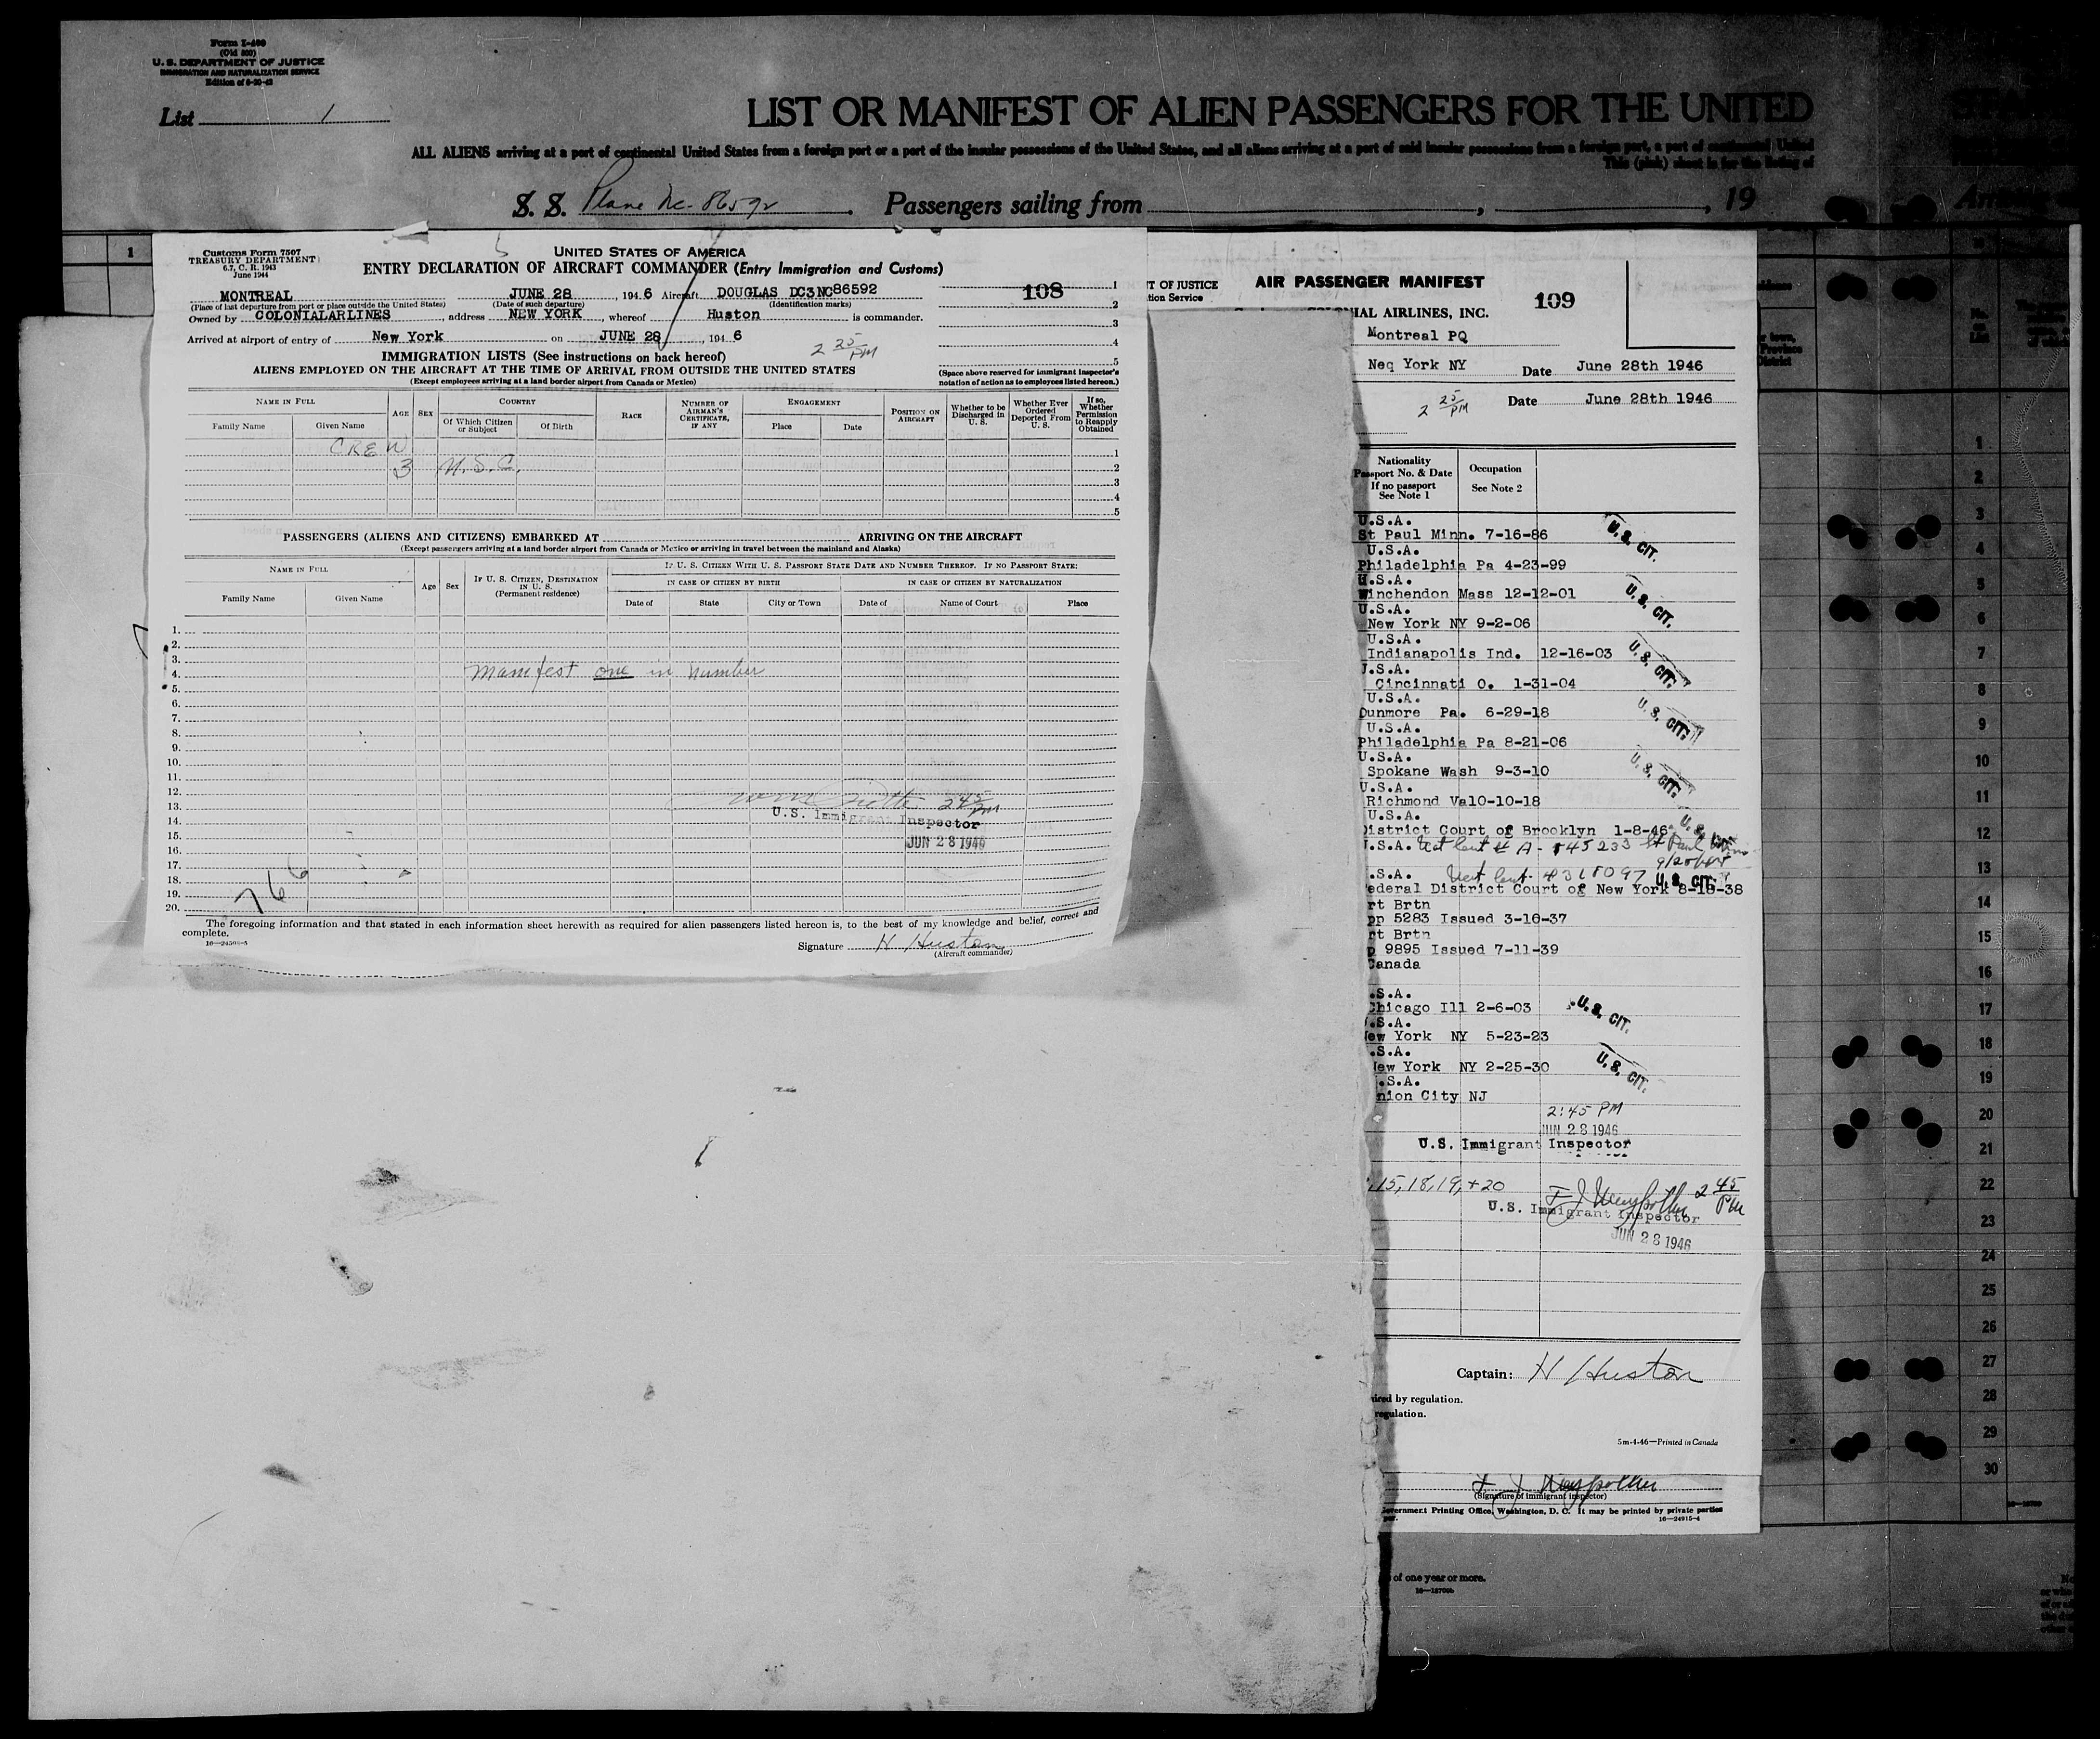 Form I-400
(Old 500)
U. S. DEPARTMENT OF JUSTICE
IMMIGRATION AND NATURALIZATION SERVICE
List 1
LIST OR MANIFEST OF ALIEN PASSENGERS FOR THE UNITED
ALL ALIENS arriving at a port of continental United States from a foreign port or a port of the insular possessions of the United States, and all aliens arriving at a port of said insular possessions from a foreign port, a port of continental United
This (pink) sheet is for the listing of
S. S. Plane Nc-86592 Passengers sailing from , , 19
1
Customs Form 7507
TREASURY DEPARTMENT
6.7, C. R. 1943
June 1944
UNITED STATES OF AMERICA
ENTRY DECLARATION OF AIRCRAFT COMMANDER (Entry Immigration and Customs)
108
MONTREAL JUNE 28, 194 6 Aircraft DOUGLAS DC3NC86592
(Place of last departure from port or place outside the United States) (Date of such departure) (Identification marks)
Owned by COLONIALARLINES, address NEW YORK, whereof Huston is commander.
Arrived at airport of entry of New York on JUNE 28, 194 6
2 25 PM
1
2
3
4
5
IMMIGRATION LISTS (See instructions on back hereof)
ALIENS EMPLOYED ON THE AIRCRAFT AT THE TIME OF ARRIVAL FROM OUTSIDE THE UNITED STATES
(Except employees arriving at a land border airport from Canada or Mexico)
(Space above reserved for immigrant inspector's notation of action as to employees listed hereon.)
NAME IN FULL
Family Name Given Name
AGE SEX
COUNTRY
Of Which Citizen or Subject Of Birth
RACE
NUMBER OF AIRMAN'S CERTIFICATE, IF ANY
ENGAGEMENT
Place Date
POSITION ON AIRCRAFT
Whether to be Discharged in U. S.
Whether Ever Ordered Deported From U. S.
If so, Whether Permission to Reapply Obtained
CREW 1
3 U.S.C. 2
3
4
5
PASSENGERS (ALIENS AND CITIZENS) EMBARKED AT ARRIVING ON THE AIRCRAFT
(Except passengers arriving at a land border airport from Canada or Mexico or arriving in travel between the mainland and Alaska)
NAME IN FULL
Family Name Given Name
Age Sex
IF U. S. CITIZEN, DESTINATION IN U. S.
(Permanent residence)
IF U. S. CITIZEN WITH U. S. PASSPORT STATE DATE AND NUMBER THEREOF. IF NO PASSPORT STATE:
IN CASE OF CITIZEN BY BIRTH IN CASE OF CITIZEN BY NATURALIZATION
Date of State City or Town Date of Name of Court Place
1.
2.
3.
4. Manifest one in number
5.
6.
7.
8.
9.
10.
11.
12.
13. 2 45 PM
14. U.S. Immigrant Inspector
15. JUN 28 1946
16.
17.
18.
19.
20.
766
The foregoing information and that stated in each information sheet herewith as required for alien passengers listed hereon is, to the best of my knowledge and belief, correct and
complete.
Signature H Huston
(Aircraft commander)
T OF JUSTICE
tion Service
AIR PASSENGER MANIFEST
109
IAL AIRLINES, INC.
Montreal PQ
Neq York NY Date June 28th 1946
2 25 PM Date June 28th 1946
Nationality
Passport No. & Date
If no passport
See Note 1
Occupation
See Note 2
U.S.A.
St Paul Minn. 7-16-86 U. S. CIT.
U.S.A.
Philadelphia Pa 4-23-99
U.S.A.
Winchendon Mass 12-12-01 U. S. CIT.
U.S.A.
New York NY 9-2-06
U.S.A.
Indianapolis Ind. 12-16-03 U. S. CIT.
U.S.A.
Cincinnati O. 1-31-04
U.S.A.
Dunmore Pa. 6-29-18 U. S. CIT.
U.S.A.
Philadelphia Pa 8-21-06
U.S.A.
Spokane Wash 9-3-10 U. S. CIT.
U.S.A.
Richmond Va10-10-18
U.S.A.
District Court of Brooklyn 1-8-46 U. S.
.S.A. A- 145233 St Paul
.S.A. 4318097 U. S. CIT.
ederal District Court of New York 8-18-38
rt Brtn
pp 5283 Issued 3-16-37
rt Brtn
p 9895 Issued 7-11-39
Canada
.S.A.
Chicago Ill 2-6-03 U. S. CIT.
.S.A.
ew York NY 5-23-23
.S.A.
New York NY 2-25-30 U. S. CIT.
.S.A.
nion City NJ
2:45 PM
JUN 28 1946
U.S. Immigrant Inspector
15, 18, 19, + 20
2 45 PM
U.S. Immigrant Inspector
JUN 28 1946
Captain: H Huston
ired by regulation.
regulation.
5m-4-46—Printed in Canada
(Signature of immigrant inspector)
overnment Printing Office, Washington, D. C. It may be printed by private parties
16—24915-4
of one year or more.
1
2
3
4
5
6
7
8
9
10
11
12
13
14
15
16
17
18
19
20
21
22
23
24
25
26
27
28
29
30